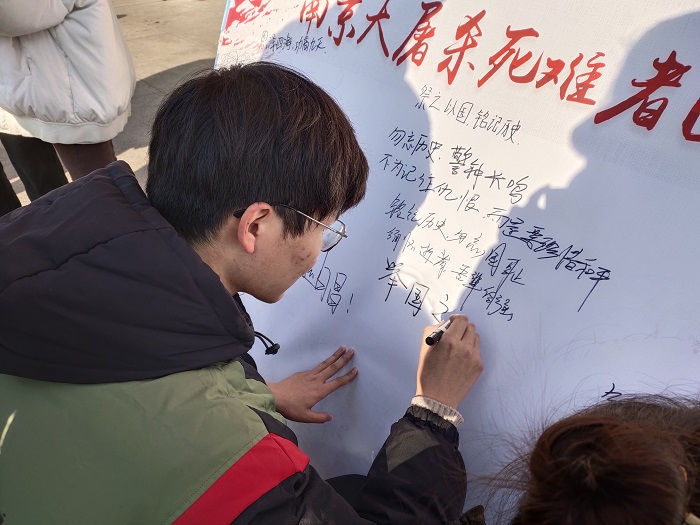 南京大屠杀死难者
祭之以国,铭记历史.
勿忘历史,警钟长鸣
不为记住仇恨,而是要珍惜和平
铭记历史 勿忘国耻
缅怀故者 吾辈自强
举国之
昌!